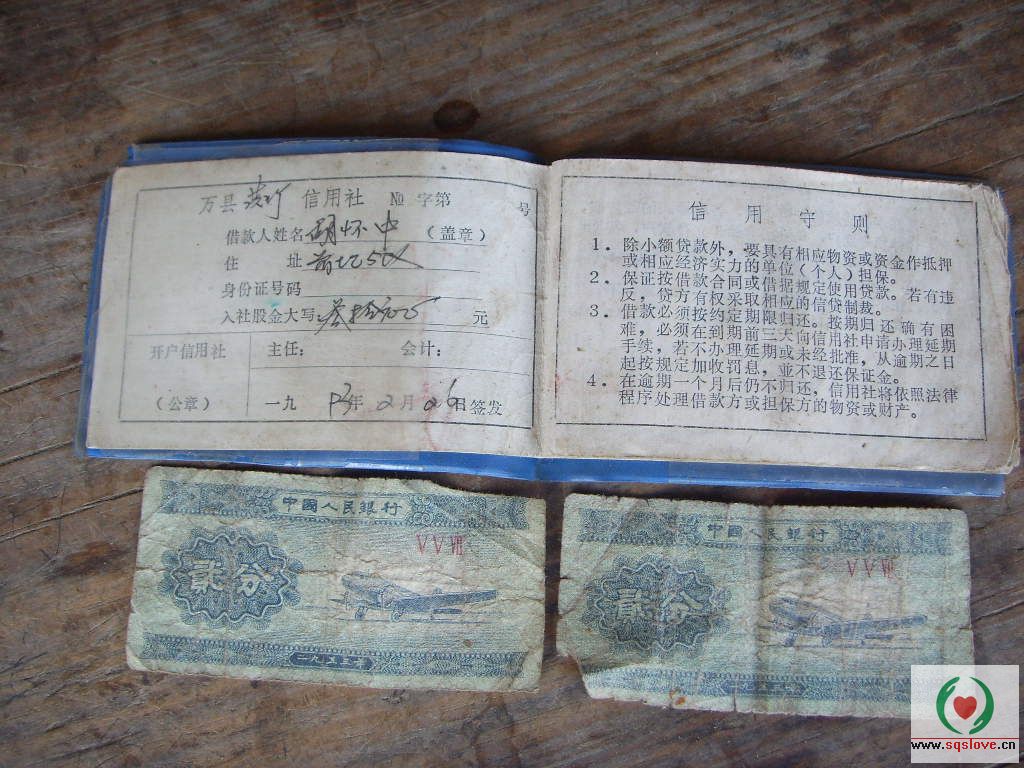 万县 信用社 № 字第 号
借款人姓名 胡怀中 （盖章）
住 址
身份证号码
入社股金大写 叁拾 元
开户信用社
主任： 会计：
（公章）
一九 年 2 月 26 日签发
信 用 守 则
1．除小额贷款外，要具有相应物资或资金作抵押
或相应经济实力的单位（个人）担保。
2．保证按借款合同或借据规定使用贷款。若有违
反，贷方有权采取相应的信贷制裁。
3．借款必须按约定期限归还。按期归还确有困
难，必须在到期前三天向信用社申请办理延期
手续，若不办理延期或未经批准，从逾期之日
起按规定加收罚息，並不退还保证金。
4．在逾期一个月后仍不归还，信用社将依照法律
程序处理借款方或担保方的物资或财产。
中國人民銀行
V V VII
貳分
一九五三年
中國人民銀行
V V VII
貳分
www.sqslove.cn